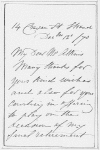 14
Dec
My dear Mr
Many thanks for
your kind wishes
and also for your
courtesy in offering
to play on the
occasion of my
final retirement